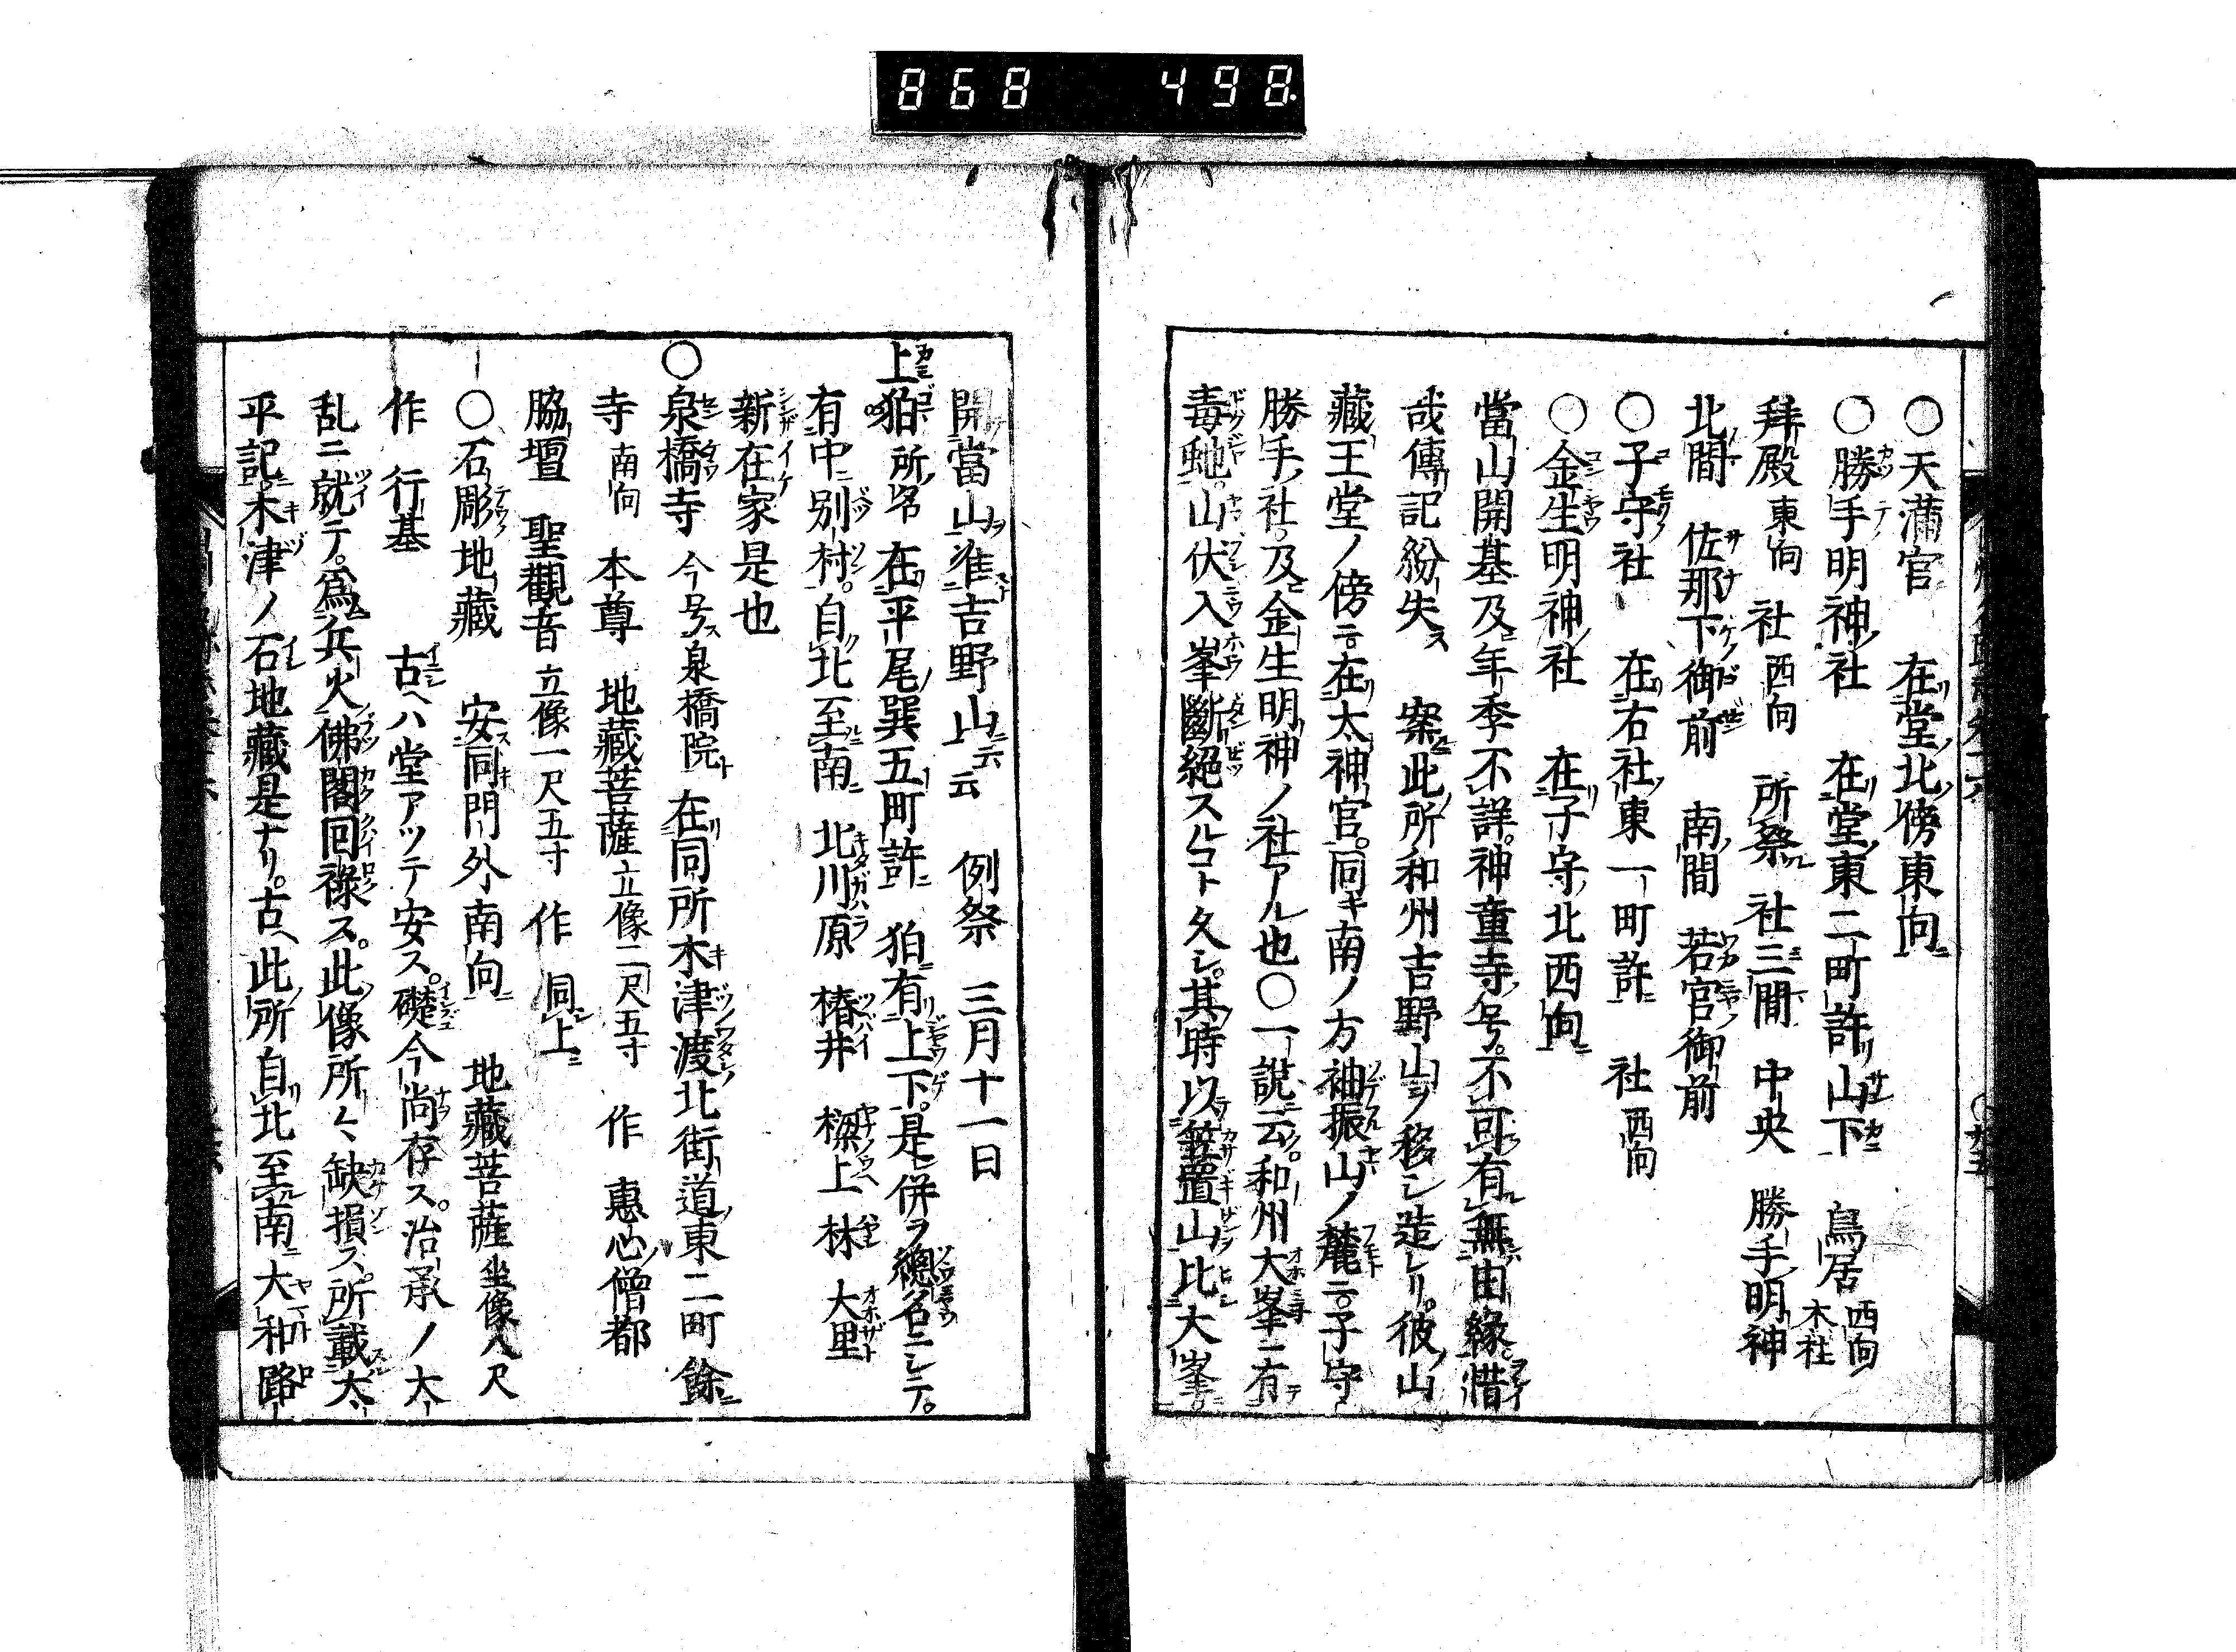 868 498
○天満宮 在堂北傍東向
○勝手明神社 在堂東二町許山下 鳥居 西向 木柱
拜殿 東向 社 西向 所祭 社三間 中央 勝手明神
北間 佐那下御前 南間 若宮御前
○子守社 在右社東一町許 社 西向
○金生明神社 在子守北西向
當山開基及年季不詳。神童寺号。不可有無由縁。惜
哉傳記紛失ス 案此所和州吉野山ヲ移シ造レリ。彼山
藏王堂ノ傍ニ。在太神宮。同キ南ノ方袖振山ノ麓ニ。子守
勝手ノ社。及金生明神ノ社アル也○一説云。和州大峯ニ有
毒虵。山伏入峯斷絶スルコト久シ。其時以笠置山比大峯。
開當山准吉野山云云 例祭 三月十一日
上狛 所名 在平尾巽五町許 狛有上下。是併ヲ總名ニシテ。
有中別村。自北至南 北川原 椿井 樑上 林 大里
新在家是也
○泉橋寺 今号泉橋院 在同所木津渡北街道東二町餘
寺 南向 本尊 地藏菩薩 立像二尺五寸 作 惠心僧都
脇壇 聖觀音 立像一尺五寸 作 同上
○石彫地藏 安同門外南向 地藏菩薩 坐像八尺
作 行基 古ヘハ堂アツテ安ス。礎今尚存ス。治承ノ大
乱ニ就テ。爲兵火佛閣回祿ス。此像所々缺損ス。所載太
平記木津ノ石地藏是ナリ。古ヘ此所自北至南大和路